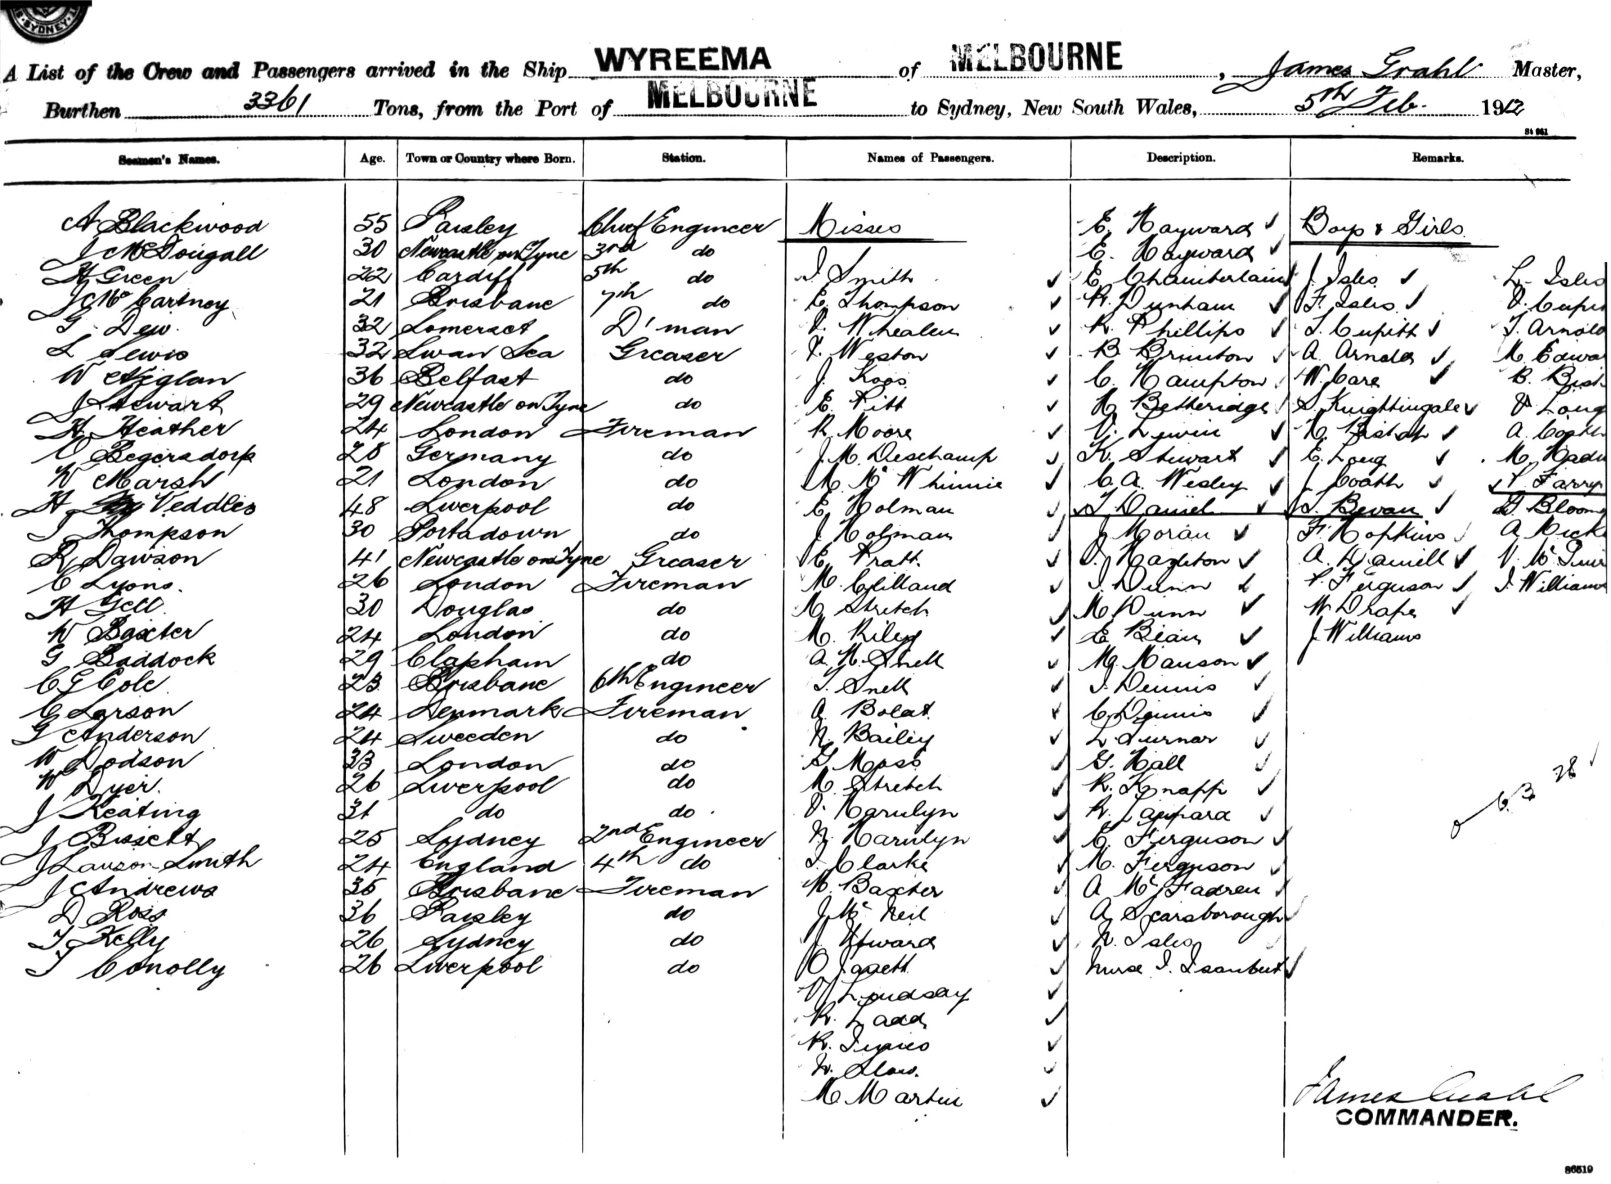 SYDNEY
A List of the Crew and Passengers arrived in the Ship WYREEMA of MELBOURNE, James Grahl Master,
Burthen 3361 Tons, from the Port of MELBOURNE to Sydney, New South Wales, 5th Feb. 1912
84 961
Seamen's Names. Age. Town or Country where Born. Station. Names of Passengers. Description. Remarks.
A Blackwood 55 Paisley Chief Engineer Misses E. Hayward Boys & Girls
J McDougall 30 Newcastle on Tyne 3rd do C. Hayward
H Green 22 Cardiff 5th do I. Smith E Chamberlain J. Isles L. Isles
J McCartney 21 Brisbane 7th do E. Thompson R. Dunham F. Isles
G. Dew 32 Somerset D'man V. Whealen R. Phillips S. Cupitt T. Arnold
L Lewis 32 Swan Sea Greaser V. Weston B Brinton A. Arnold
W 36 Belfast do J. Koos C. Hampton W. Care
J Stewart 29 Newcastle on Tyne do E. Pitt N Betheridge S. Knightingale
H Heather 24 London Fireman R Moore V. Lewin
O Begersdorf 28 Germany do J. M. Deschamp K. Stewart E. Long
W Marsh 21 London do M McWhinnie C. A. Wesley J Coath
H Veddles 48 Liverpool do E Holman T. Daniel S. Bevan
J Thompson 30 Portadown do J Holman J Moran F. Hopkins
R Dawson 41 Newcastle on Tyne Greaser E. Pratt
C Lyons. 26 London Fireman M. Gilland I. Dunn V. Ferguson I. Williams
H Gell. 30 Douglas do M Stretch M. Dunn W Drape
W Baxter 24 London do M. Riley E Bean J Williams
G Baddock 29 Clapham do A N. Snell M. Manson
C G Cole 23 Brisbane 6th Engineer I. Snell I. Dennis
C Larson 24 Denmark Fireman A Bolat C Dennis
G Anderson 24 Sweeden do N Bailey L. Turner
W Dodson 33 London do G Moss G. Hall
W Dyer. 26 Liverpool do M. Stretch R. Knapp
J Keating 31 do do V. Marulyn R. Lappard
J Bissett 25 Sydney 2nd Engineer N. Marulyn C. Ferguson
J Lawson Smith 24 England 4th do I. Clarke M. Ferguson
J Andrews 35 Brisbane Fireman M. Baxter A McFadren
D Ross 36 Paisley do J McNeil A Scarsborough
T Kelly 26 Sydney do J Howard N. Isles
T Conolly 26 Liverpool do Nurse I.
V Lindsay
R. Ladd
R.
M Martin
James Grahl
COMMANDER.
86519